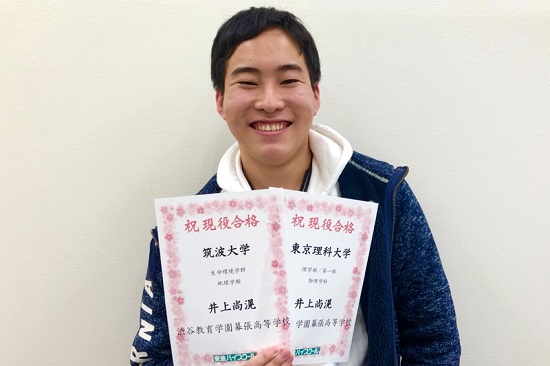 祝 現役合格
筑波大学
生命環境学群
地球学類
井上尚滉
渋谷教育学園幕張高等学校
東進ハイスクール
祝 現役合格
東京理科大学
理学部/第一部
物理学科
井上尚滉
学園幕張高等学校
ハイスクール
RNIA